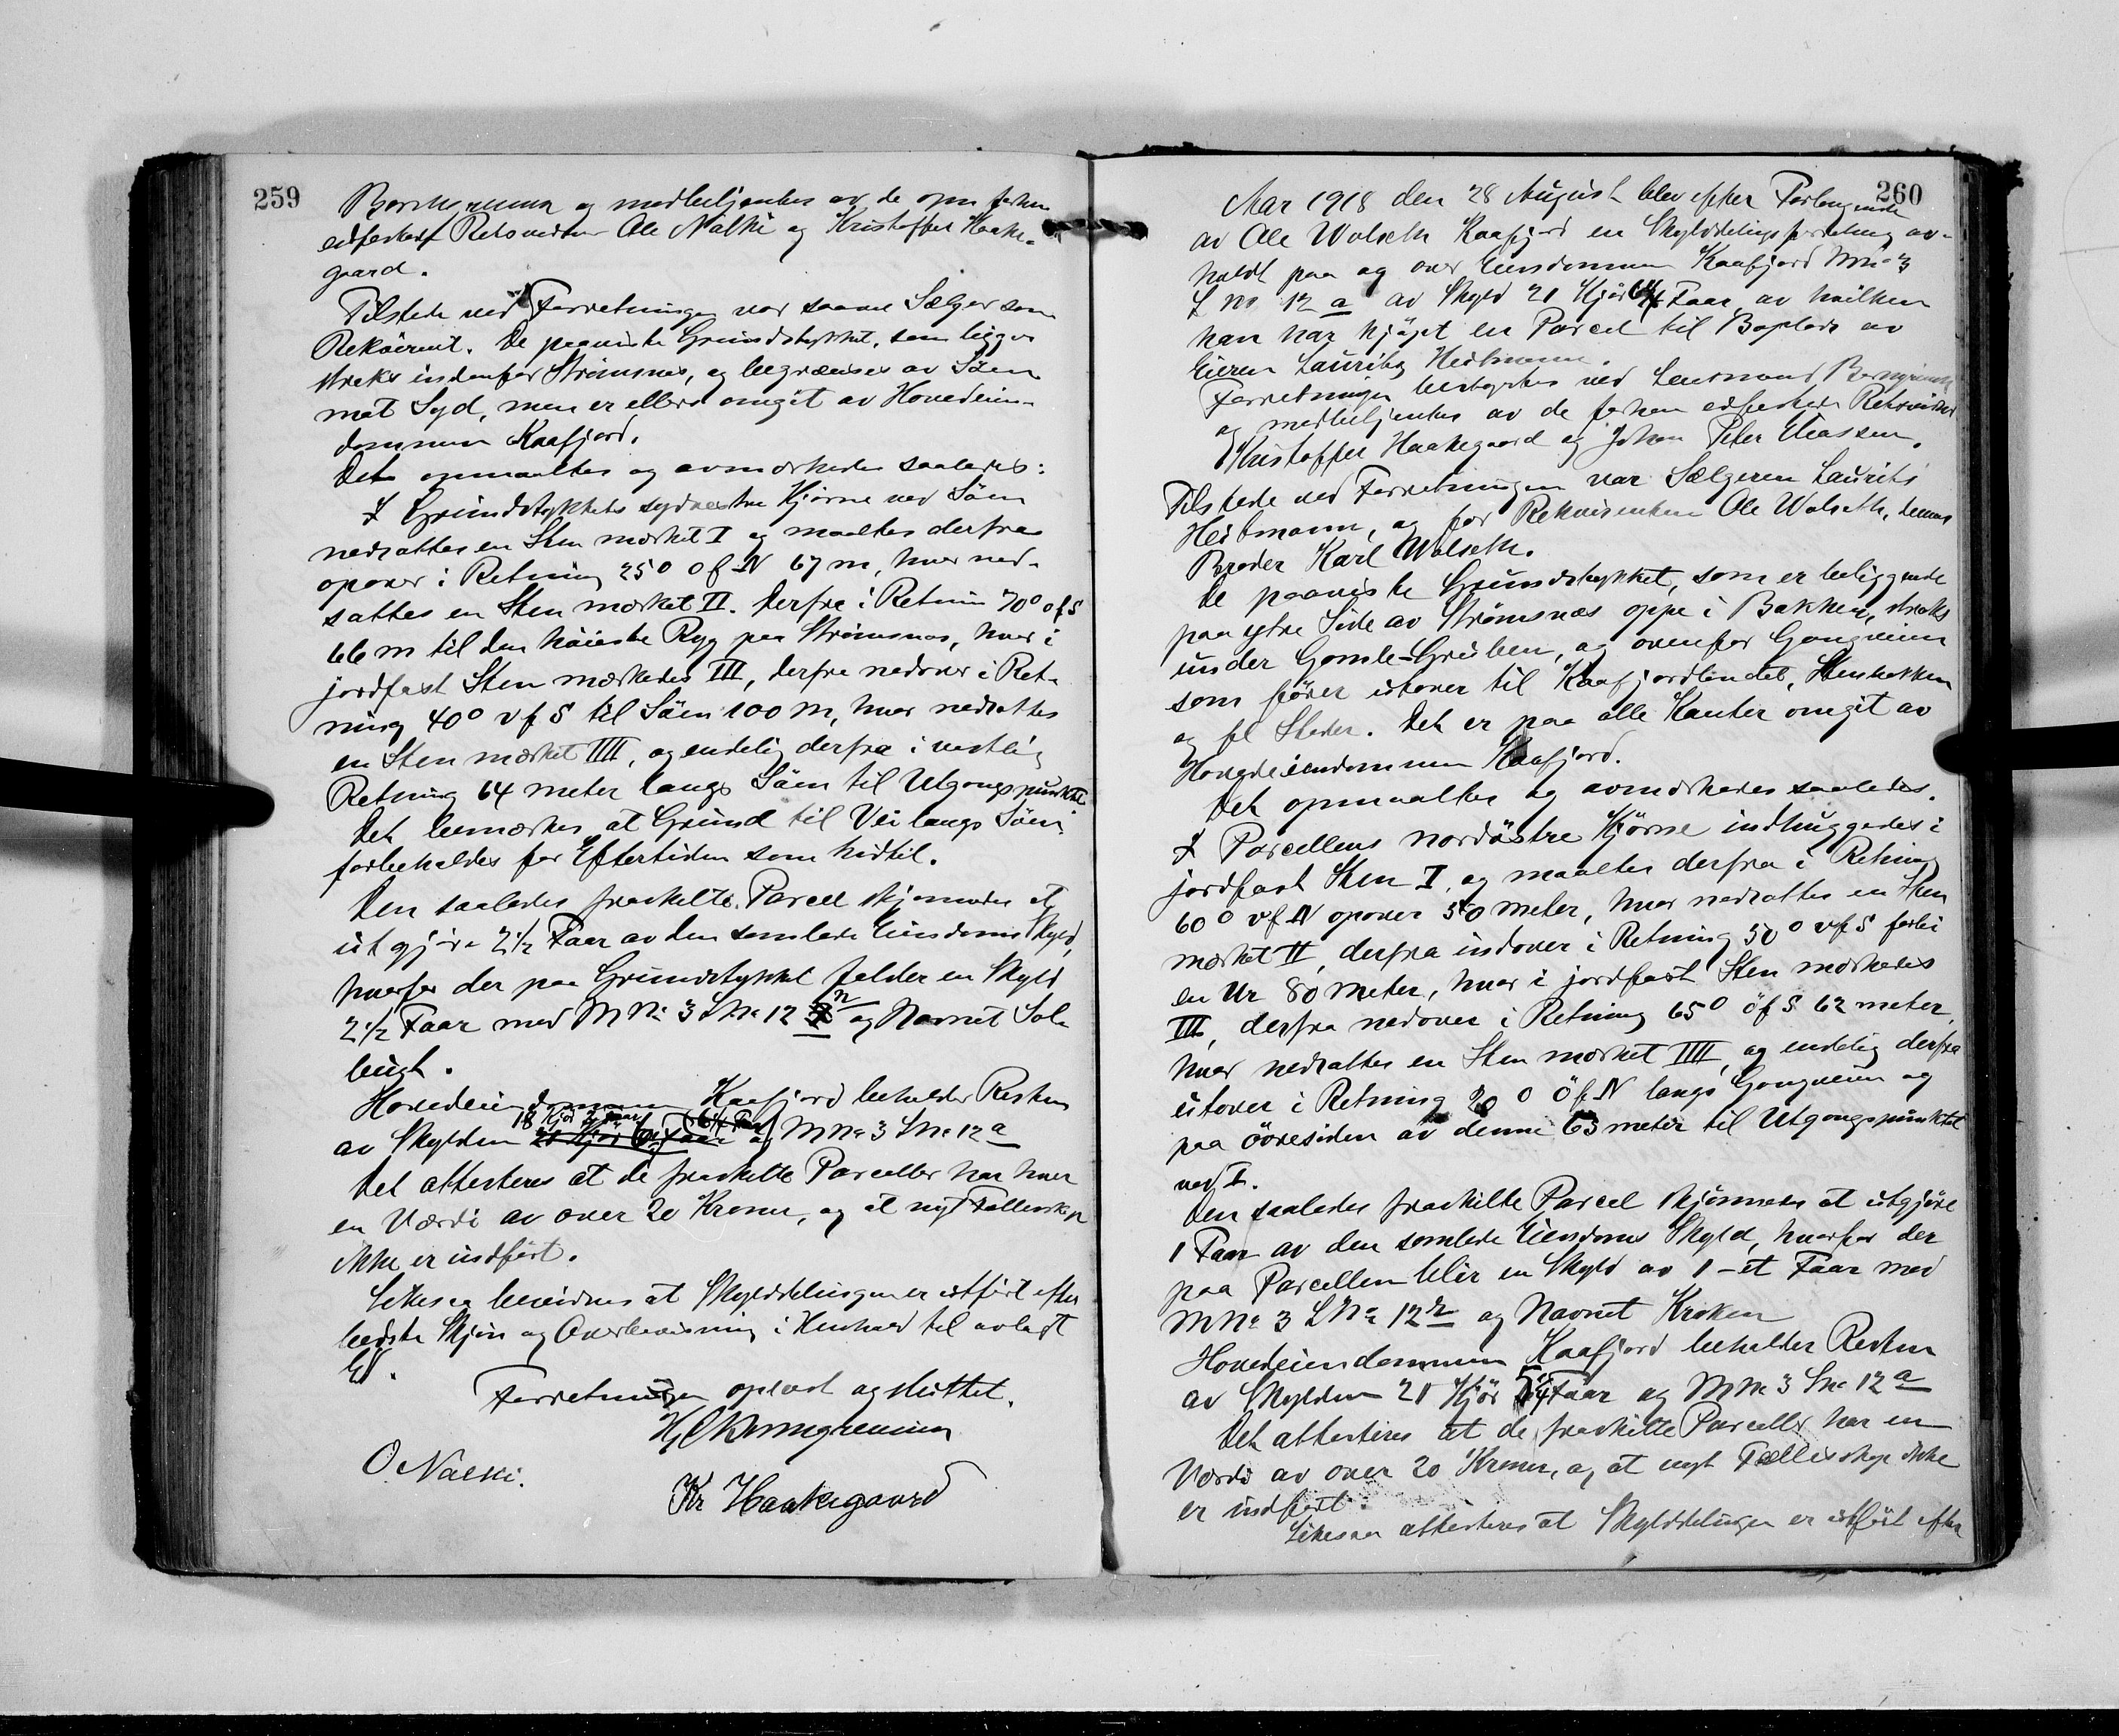 259
og medbetjentes av de opn forhen
edfæstede Retsvidner Ole Nalki og Kristoffer Haake-
gaard.
Tilstede ved Forretningen var saavel Sælger som
Rekvirent. De paaviste Grundstykket, som ligger
straks indenfor Strömsnes, og begrænses av Söen
mot Syd, men er ellers omgit av Hovedeien-
dommen Kaafjord.
Det opmaaltes og avmerkedes saaledes:
I Grundstykkets sydvestre Hjörne ved Söen
nedsattes en Sten merket I og maaltes derfra
opover i Retning 25° ö f N 67 m, hvor ned-
sattes en Sten merket II. Derfra i Retnin 70° ö f S
66 m til den höieste Ryg paa Strömsnes, hvor i
jordfast Sten merkedes III, derfra nedover i Ret-
ning 40° v f S til Söen 100 m, hvor nedsattes
en Sten merket IIII, og endelig derfra i vestlig
Retning 64 meter langs Söen til Utgangspunktet
Det bemerkes at Grund til Vei langs Söen
forbeholdes for Eftertiden som hidtil.
Den saaledes fraskilte Parcel skjönnedes at
utgjöre 2 1/2 Faar av den samlede Eiendoms Skyld,
hvorfor der paa Grundstykket falder en Skyld
2 1/2 Faar med M No 3 L No 12 n og Navnet Sol-
bugt.
Hovedeiendommen Kaafjord beholder Resten
18 Kjör 2 Faar
av Skylden 21 Kjör 6 1/4 Faar og M No 3 L No 12 a
Det attesteres at de fraskilte Parceller har hver
en Værdi av over 20 Kroner, og at nyt Fællesskap
ikke er indfört.
Likesaa bevidnes at Skylddelingen er utfört efter
bedste Skjön og Overbevisning i Henhold til avlagt
Ed.
Forretningen oplæst og sluttet.
O. Nalki.
Kr Haakegaard
260
Aar 1918 den 28 August blev efter Forlangende
av Ole Wolseth Kaafjord en Skylddelingsforretning av-
holdt paa og over Eiendommen Kaafjord M No 3
L No 12 a av Skyld 21 Kjör 6 1/4 Faar, av hvilken
han har kjöpt en Parcel til Boplads av
Eieren Laurits Heitmann.
Forretningen bestyrtes ved Lensmand
og medbetjentes av de forhen edfæstede Retsvidner
Kristoffer Haakegaard og Johan Peter Eliassen.
Tilstede ved Forretningen var Sælgeren Laurits
Heitmann, og for Rekvirenten Ole Wolseth, dennes
Broder Karl Wolseth.
De paaviste Grundstykket, som er beliggende
paa ytre Side av Strömsnes oppe i Bakken, straks
under Gamle-Gruben, og ovenfor Gangveien
som förer utover til Kaafjordbundet, Stenbakken
og fl Steder. Det er paa alle Kanter omgit av
Hovedeiendommen Kaafjord.
Det opmaaltes og avmerkedes saaledes.
I Parcellens nordöstre Hjörne indhuggedes i
jordfast Sten I, og maaltes derfra i Retning
60° v f N opover 50 meter, hvor nedsattes en Sten
merket II, derfra indover i Retning 50° v f S forbi
en Ur 80 meter, hvor i jordfast Sten merkedes
III, derfra nedover i Retning 65° ö f S 62 meter,
hvor nedsattes en Sten merket IIII, og endelig derfra
utover i Retning 20° ö f N langs Gangveien og
paa övresiden av denne 63 meter til Utgangspunktet
ved I.
Den saaledes fraskilte Parcel skjönnedes at utgjöre
1 Faar av den samlede Eiendoms Skyld, hvorfor der
paa Parcellen blir en Skyld av 1 - et Faar med
M No 3 L No 12 og Navnet Kroken
Hovedeiendommen Kaafjord beholder Resten
av Skylden 21 Kjör 5 1/4 Faar og M No 3 L No 12 a
Det attesteres at de fraskilte Parceller har en
Værdi av over 20 Kroner, og at nyt Fællesskap ikke
er indfört.
Likesaa attesteres at Skylddelingen er utfört efter